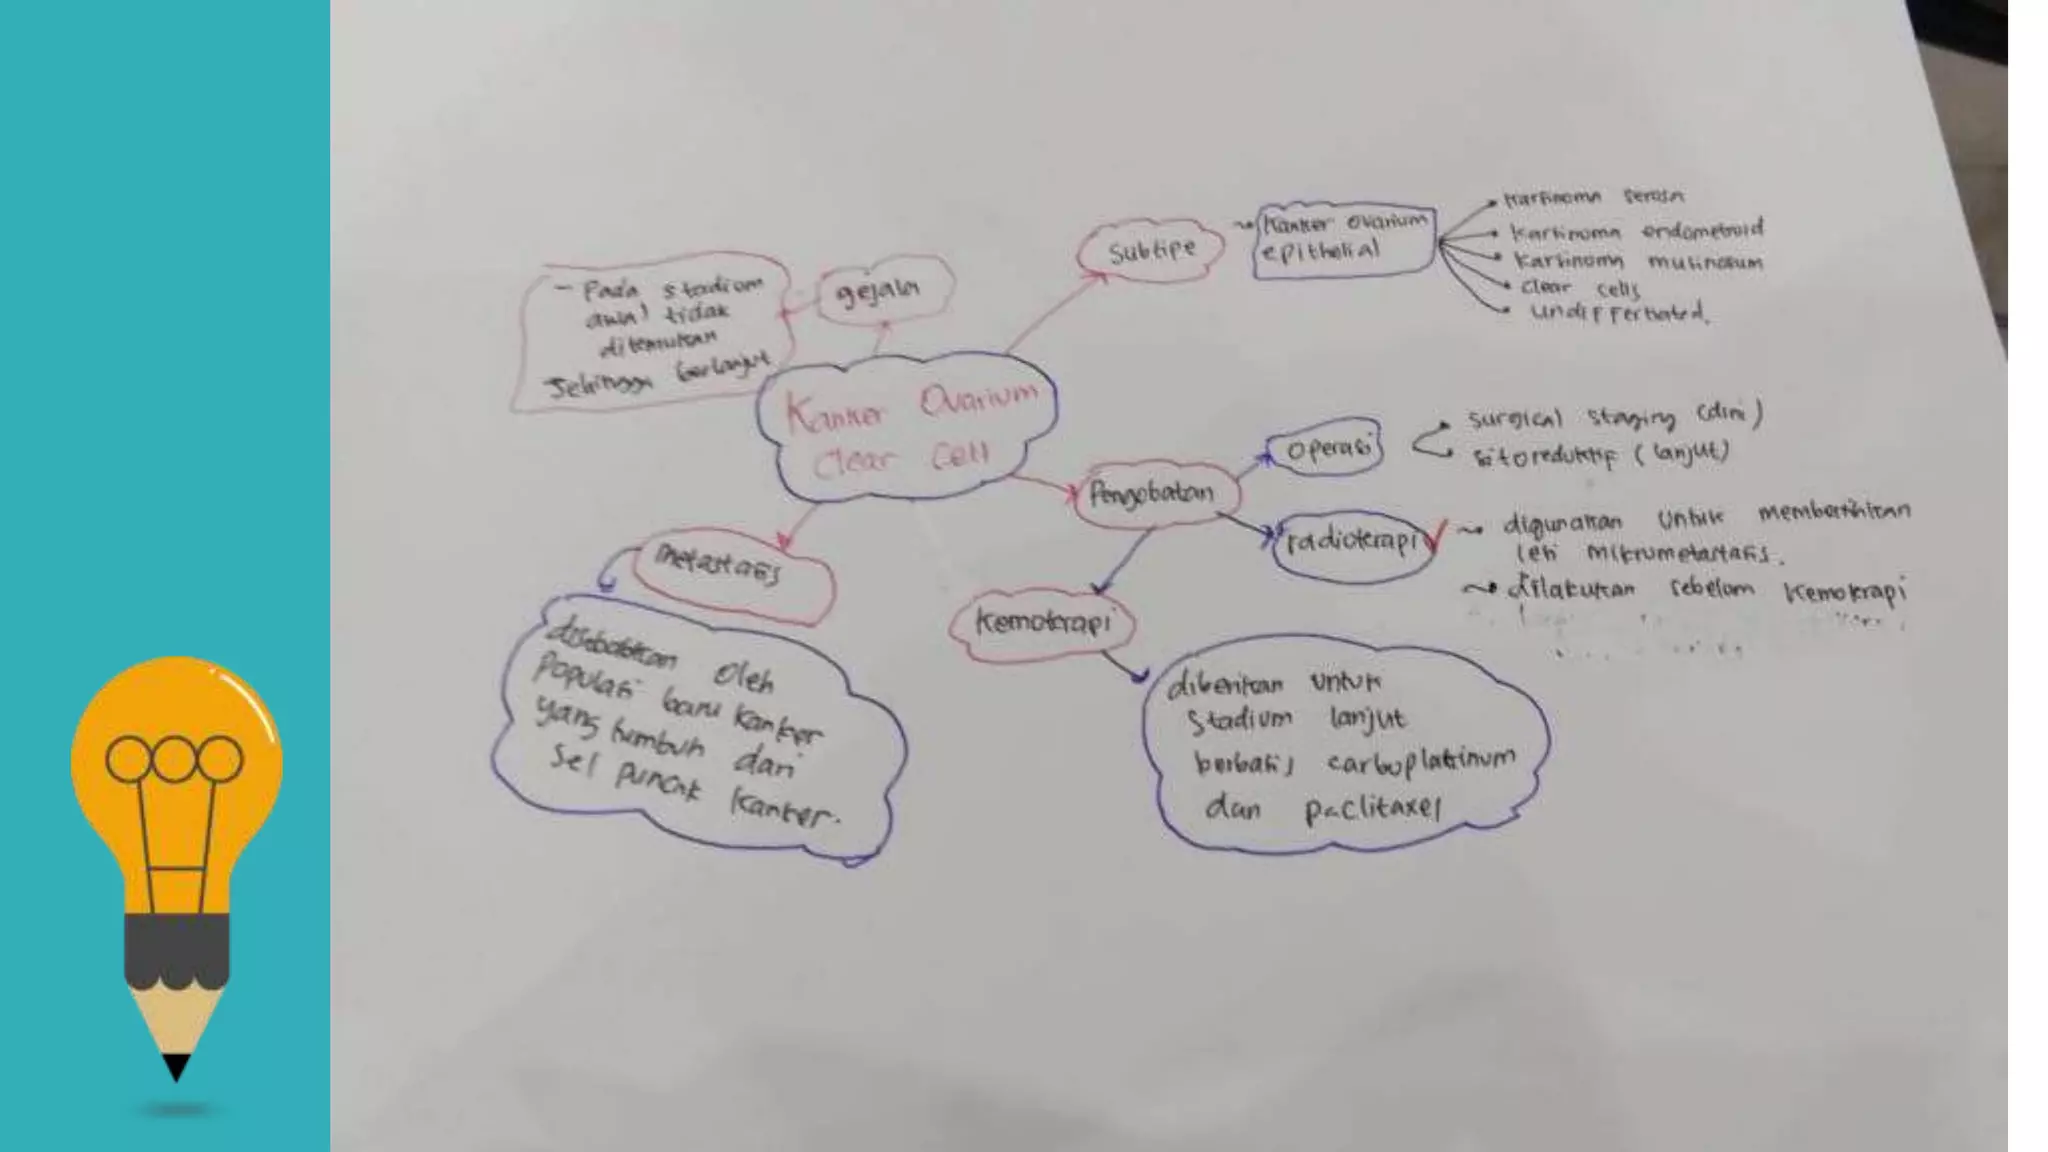 Kanker Ovarium
Clear Cell
gejala
- Pada stadium
awal tidak
ditemukan
Sehingga berlanjut
Subtipe
Kanker Ovarium
epithelial
Karsinoma serosa
Karsinoma endometroid
Karsinoma musinosum
Clear cells
undiffertiated.
Pengobatan
Operasi
Surgical staging (dini)
sitoreduktif (lanjut)
radioterapi
digunakan untuk membersihkan
lesi mikrometastasis.
dilakukan sebelum kemoterapi
Kemoterapi
diberikan untuk
Stadium lanjut
berbasis carboplatinum
dan paclitaxel
metastasis
disebabkan oleh
Populasi baru kanker
yang tumbuh dari
sel puncak kanker.